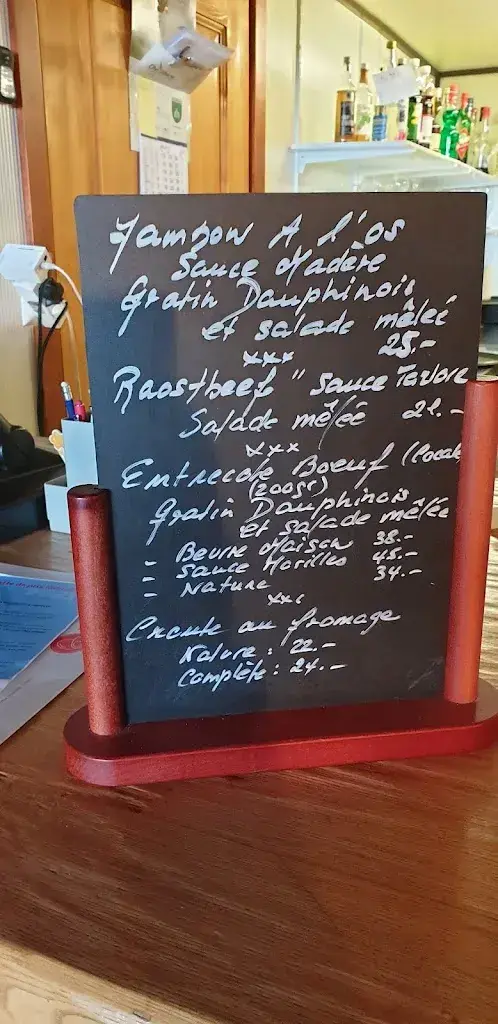 Jambon A l'os
Sauce Madère
Gratin Dauphinois
et salade mêleé
25.-
xxx
Raostbeef " Sauce Tartare
Salade mêleé 21.-
xxx
Entrecote Boeuf (Locale
(200gr)
Gratin Dauphinois
et salade mêleé
- Beurre Maison 38.-
- Sauce Morilles 45.-
- Nature 34.-
xxx
Croute au fromage
Nature : 22.-
Complète : 24.-